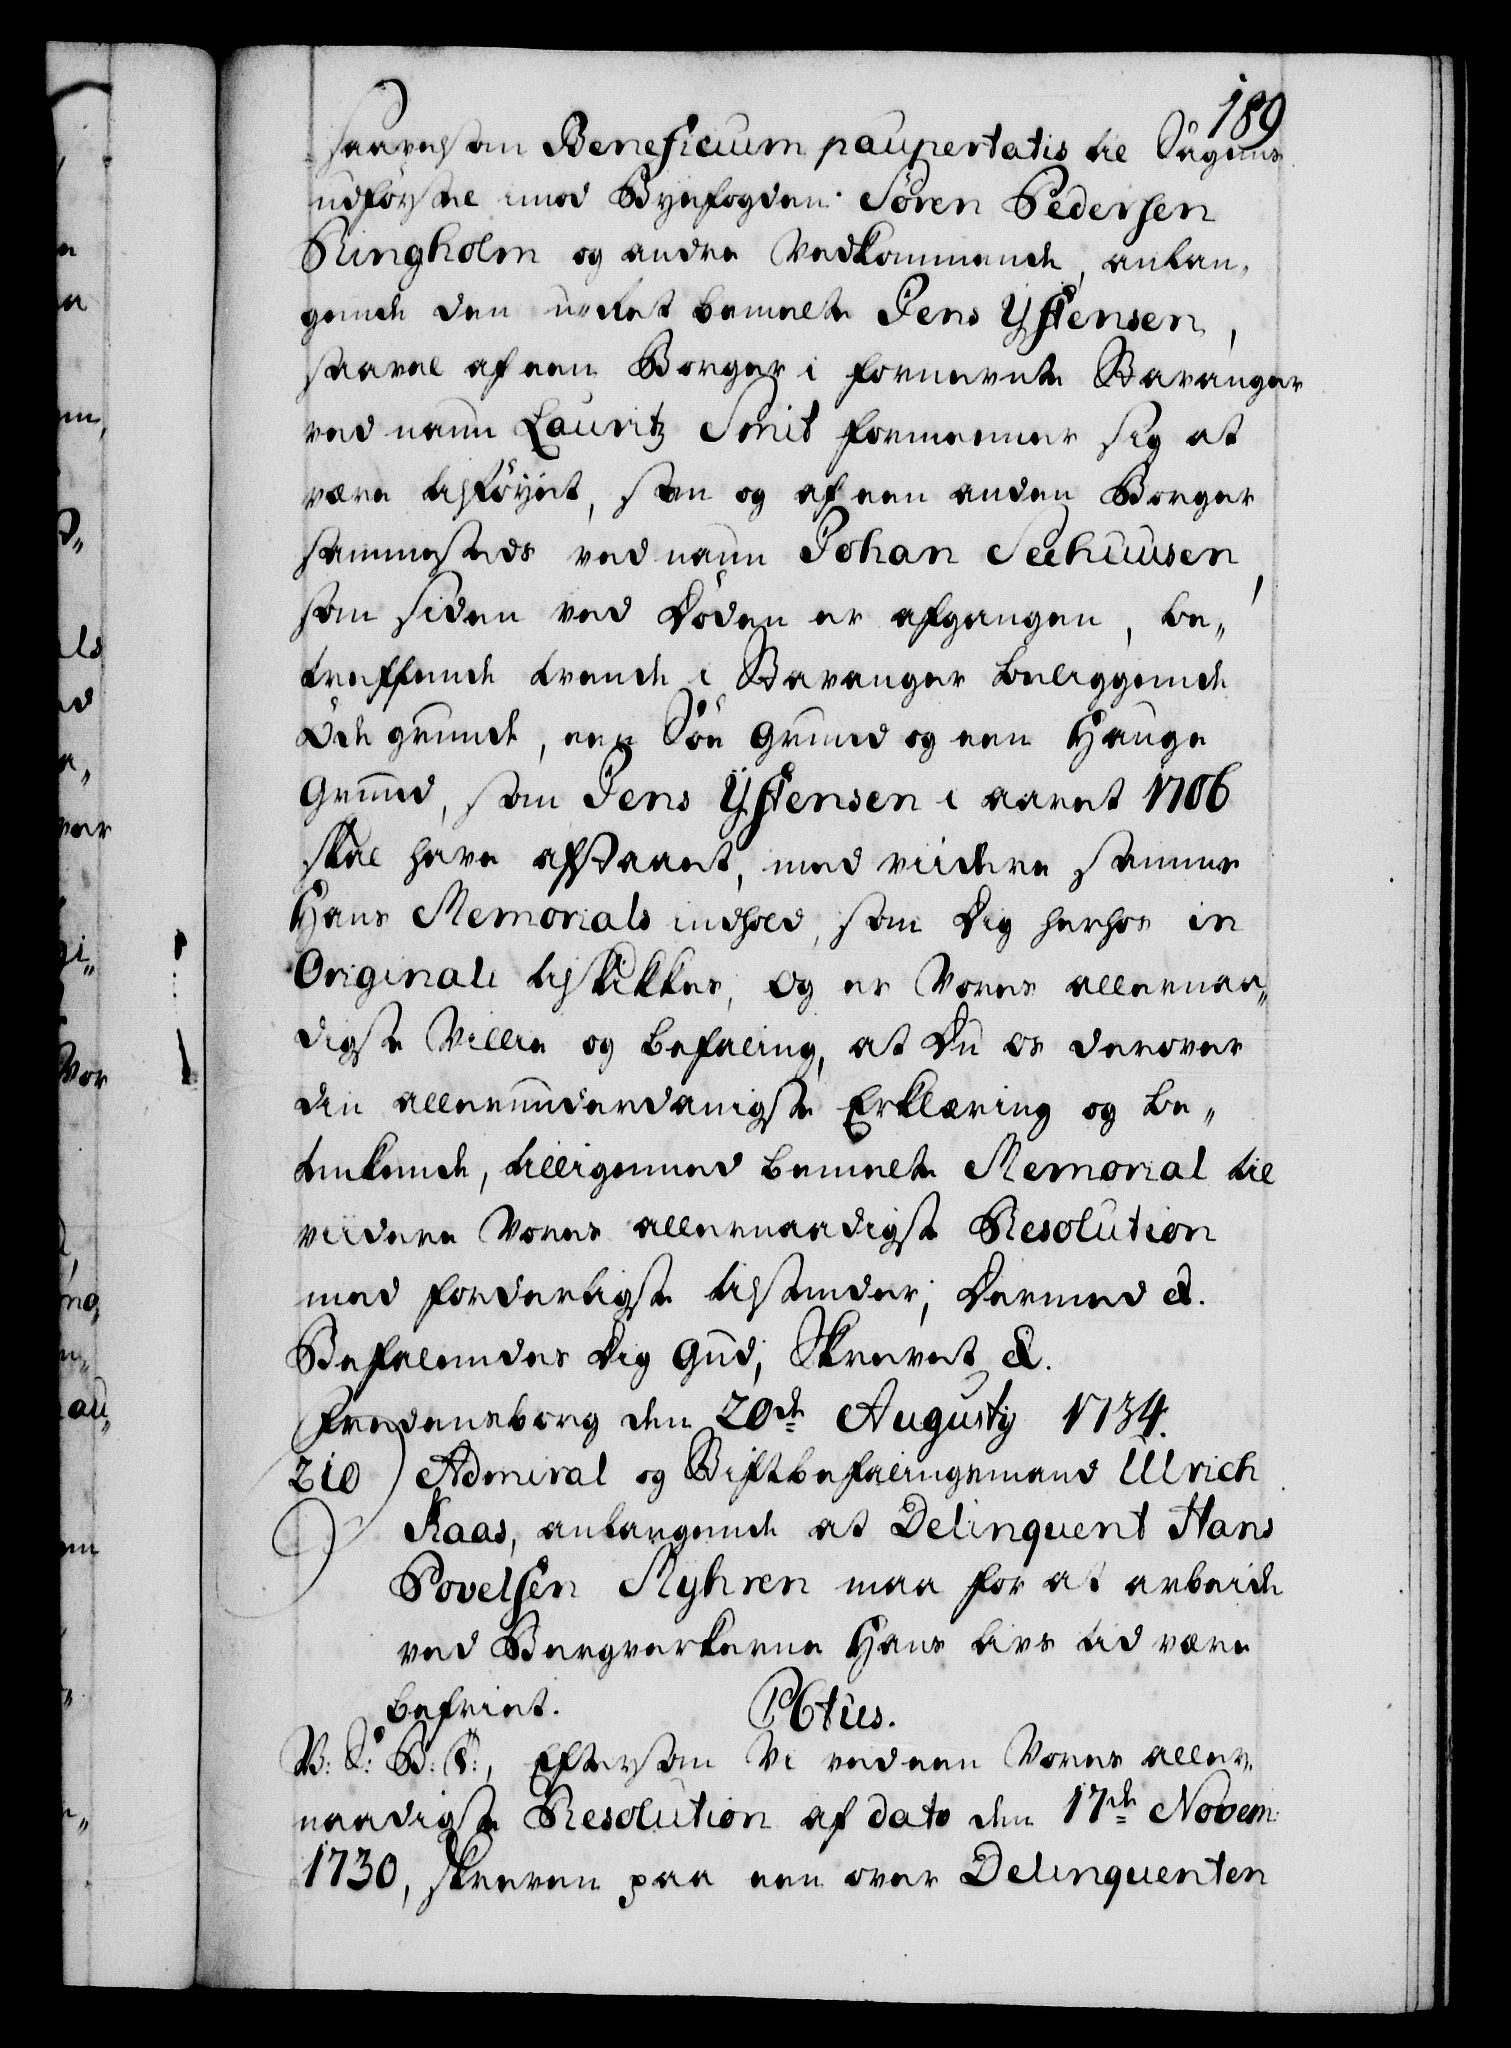 189
saavelsom Beneficium paupertatis til Sagens
udførsel imod Byefogden Søren Pedersen
Ringholm og andre Vedkommende, anlan-
gende den uret bemelte Jens Ÿstensen,
saavel af een Borger i fornevnte Stavanger
ved navn Lauritz Smit formeener sig at
være tilföÿet, som og af een anden Borger
sammesteds ved navn Johan Seehuusen,
som siden ved Döden er afgangen, be-
treffende trende i Stavanger beliggende
Öde grunde, een Söe Grund og een Hauge
Grund, som Jens Ÿstensen i aaret 1706
skal have afstaaet, med viidere samme
Hans Memorials indhold, som Dig herhos in
Originali tilskikkes, Og er Vores allernaa-
digste Villie og befaling, at Du os derover
din allerunderdanigste Erklæring og be-
tenkende, tilligemed bemelte Memorial til
viidere Vores allernaadigste Resolution
med forderligste tilsender; Dermed &.
Befalendes Dig Gud; Skrevet &.
Fredensborg den 20de Augustij 1734.
210) Admiral og Stiftbefalingsmand Ulrich
Kaas, anlangende at Delinquent Hans
Povelsen Myhren maa for at arbeide
ved Bergverkerne Hans livs tid være
befriet. PCtus.
W: S: B: T:, Eftersom Vi ved een Vores aller-
naadigste Resolution af dato den 17de Novem:
1730, skreven paa een over Delinquenten